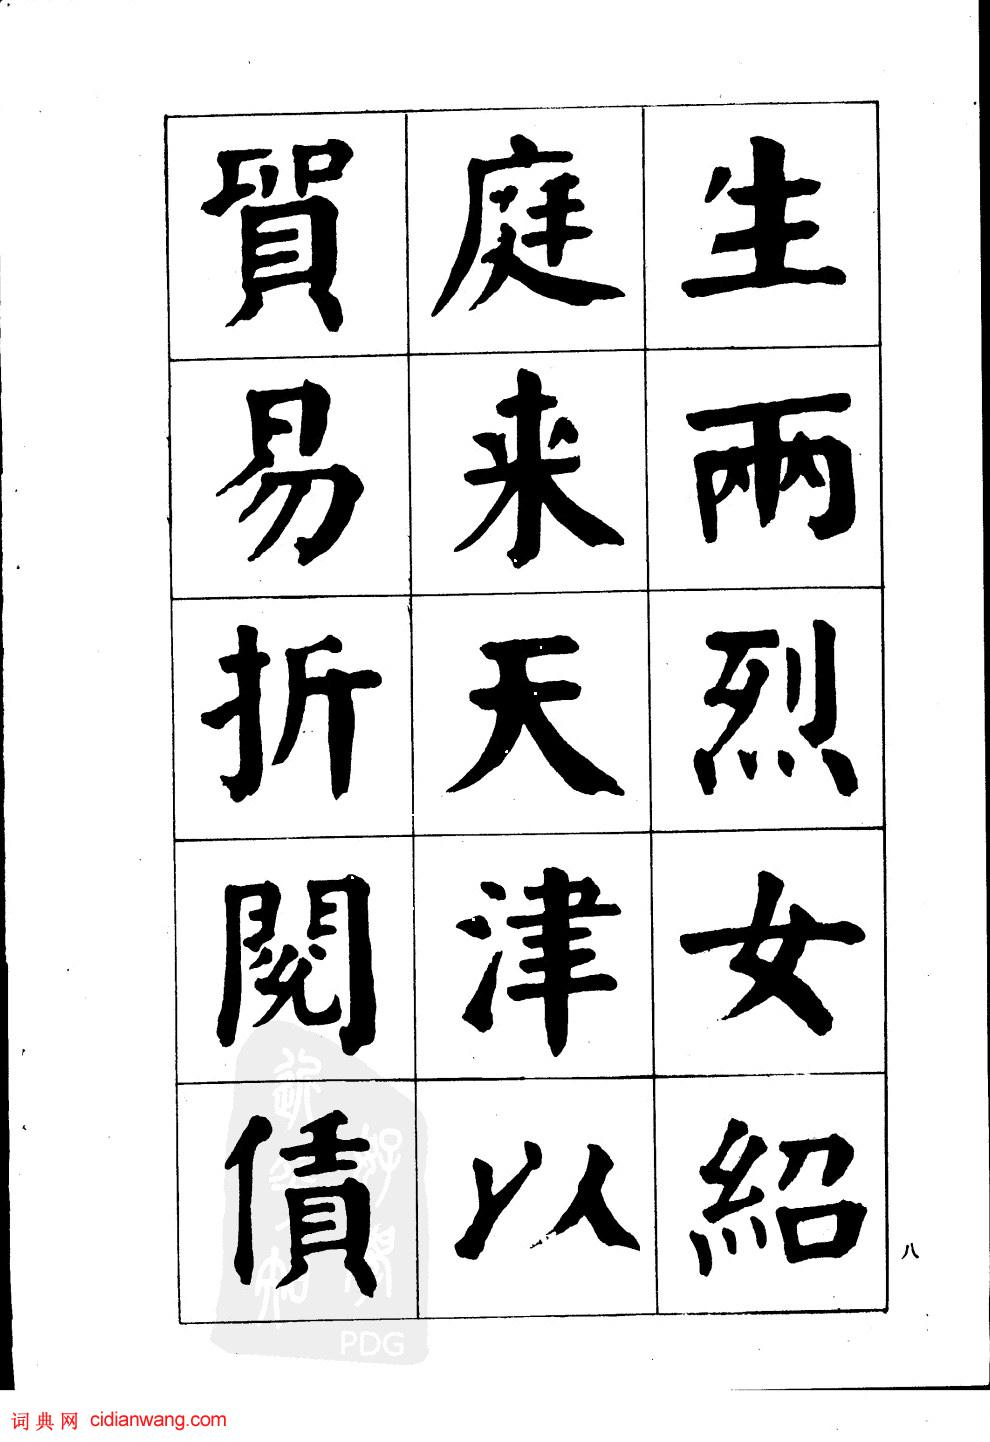 生兩烈女紹
庭来天津以
貿易折閱債
八
PDG
词典网 cidianwang.com